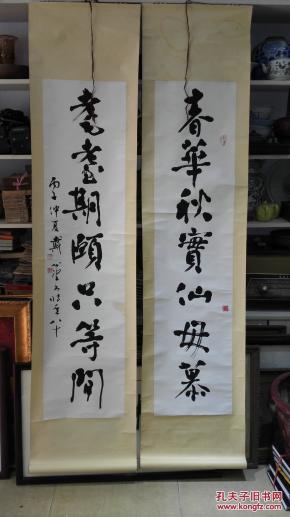 春華秋實仙毋慕
耄耋期頤只等閒
丙子仲夏戴
時年八十
孔夫子旧书网
www.kongfz.com